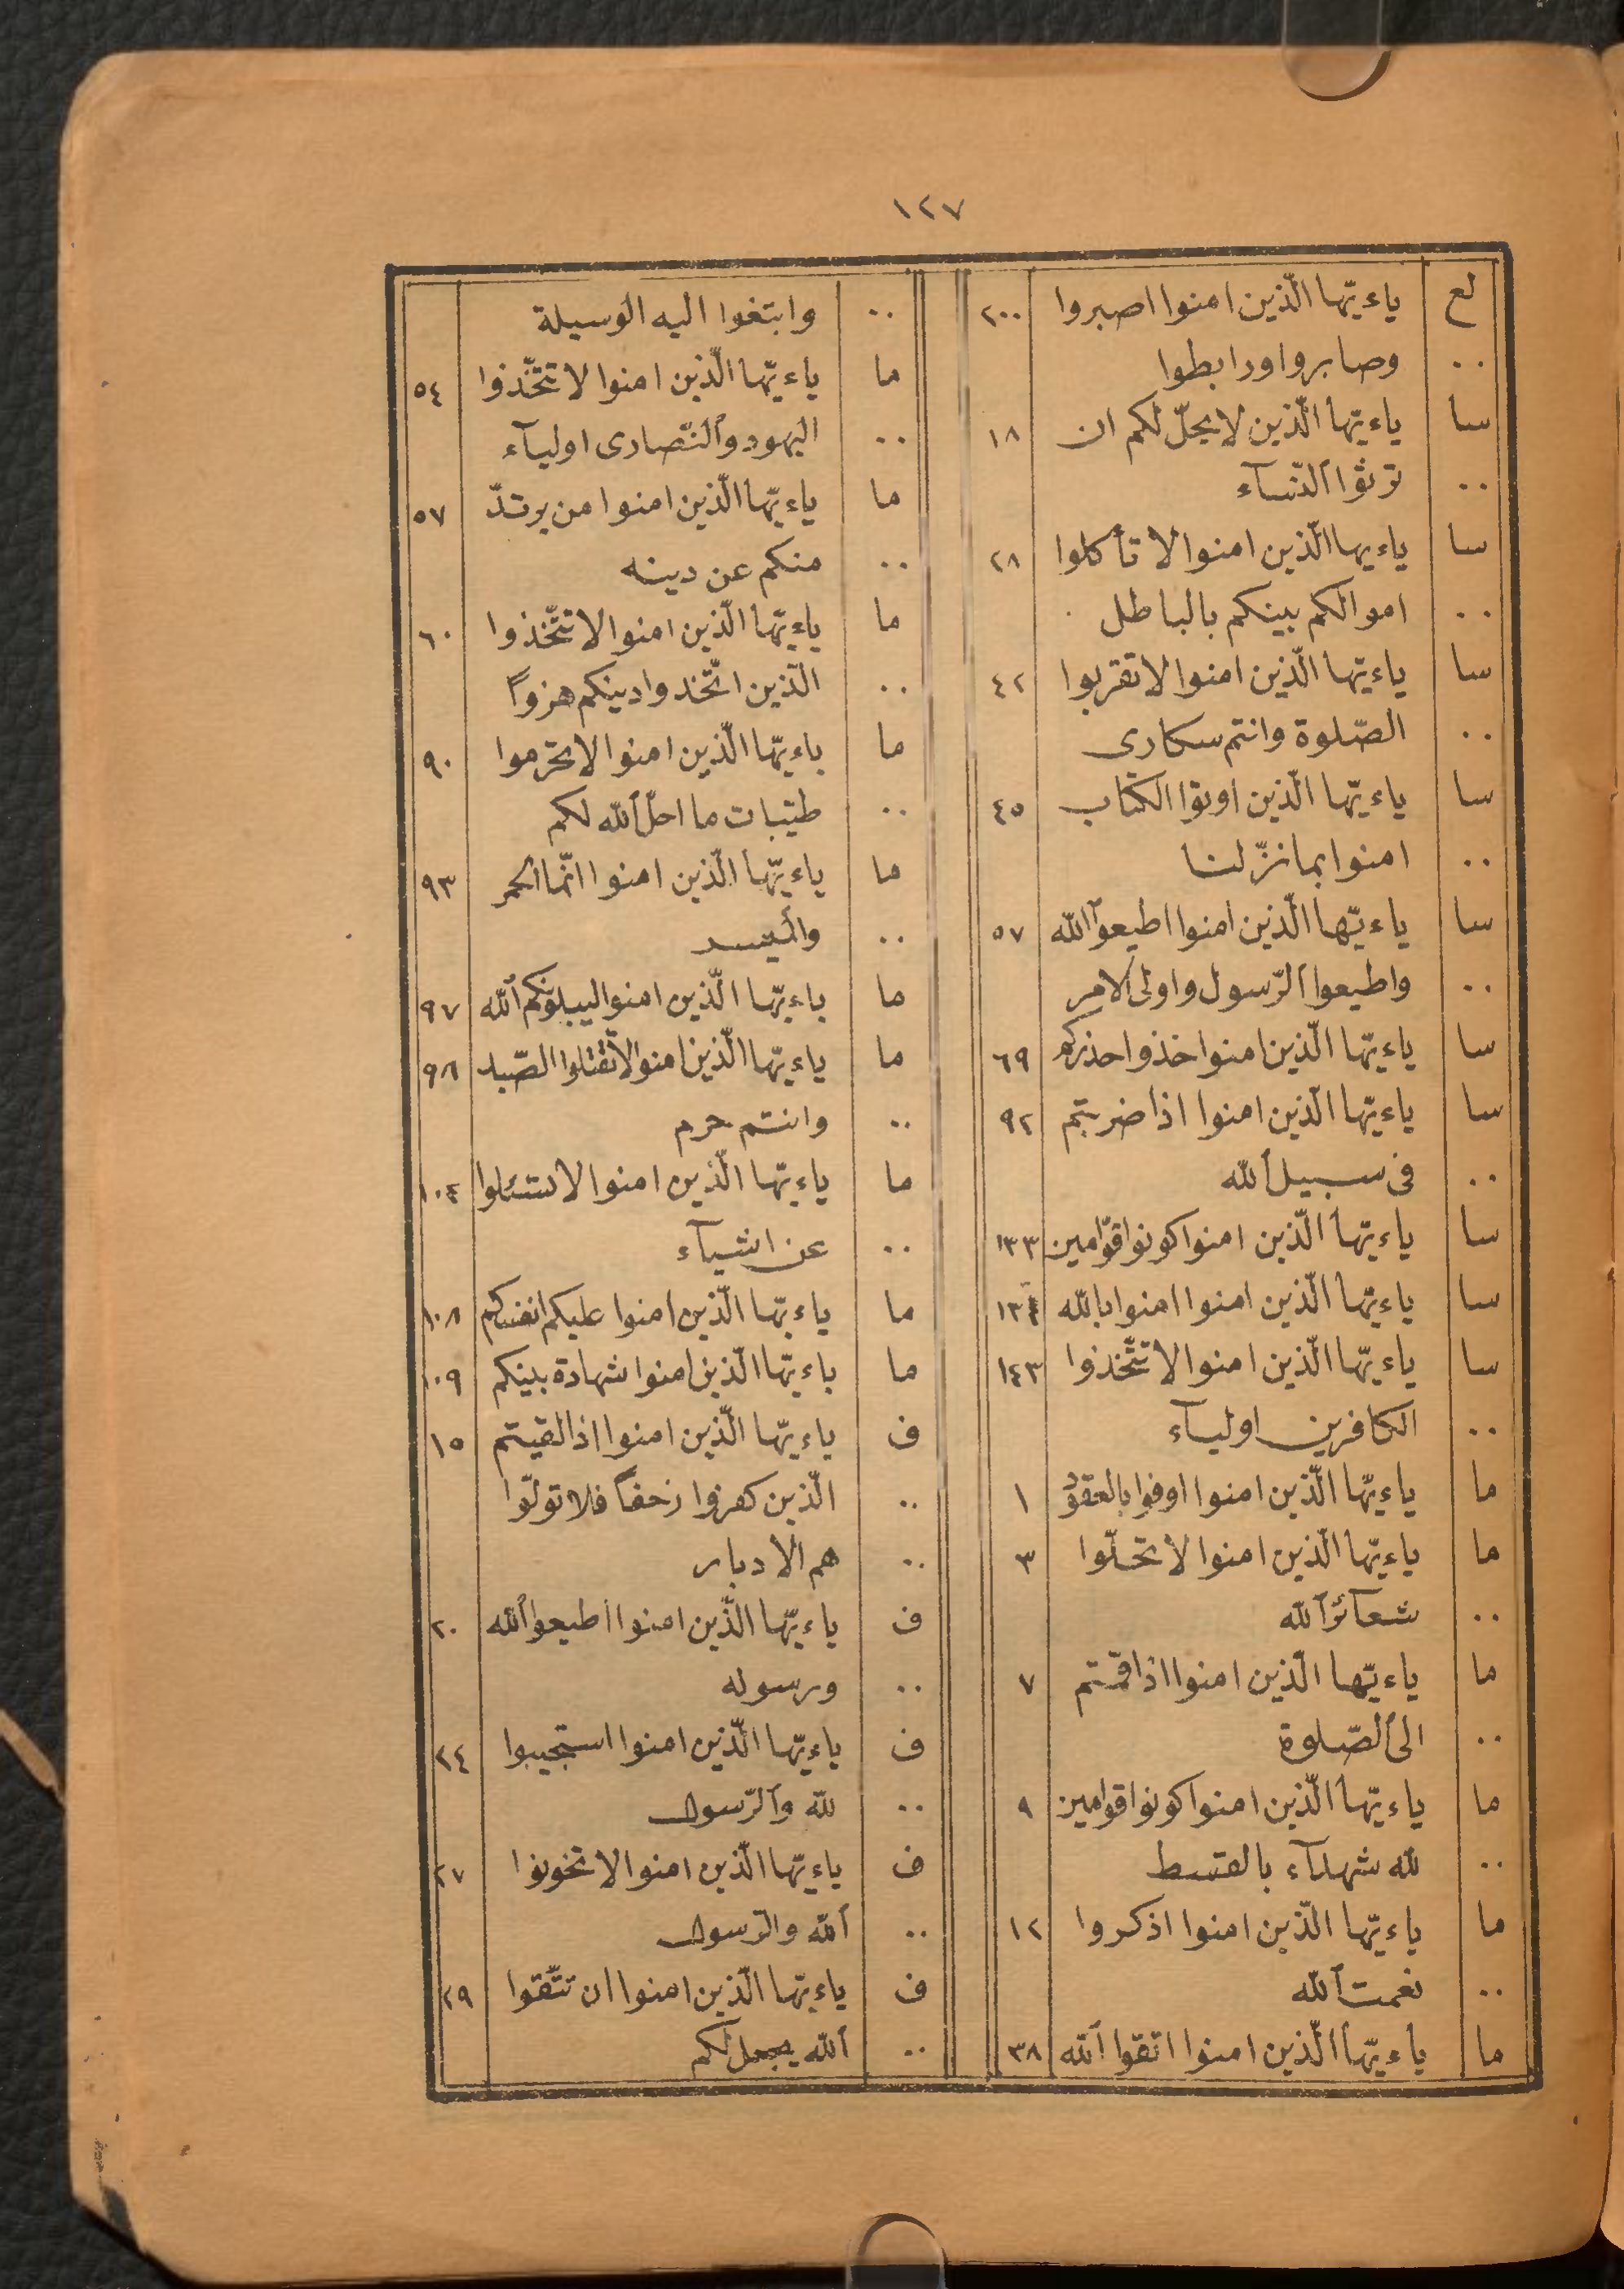 ١٢٧
لع ياءيّها الّذين امنوا اصبروا ٢٠٠
.. وصابروا ورابطوا
سا ياءيّها الّذين لا يحلّ لكم ان ١٨
.. ترثوا النّسآء
سا ياءيها الّذين امنوا لا تأكلوا ٢٨
.. اموالكم بينكم بالباطل
سا ياءيّها الّذين امنوا لا تقربوا ٤٢
.. الصّلوة وانتم سكارى
سا ياءيّها الّذين اوتوا الكتاب ٤٥
.. امنوا بما نزّلنا
سا ياءيّها الّذين امنوا اطيعوا الله ٥٧
.. واطيعوا الرّسول واولى الامر
سا ياءيّها الّذين امنوا خذوا حذركم ٦٩
سا ياءيّها الّذين امنوا اذا ضربتم ٩٢
.. فى سبيل الله
سا ياءيّها الّذين امنوا كونوا قوّامين ١٣٣
سا ياءيّها الّذين امنوا امنوا بالله
سا ياءيّها الّذين امنوا لا تتّخذوا ١٤٣
.. الكافرين اوليآء
ما ياءيّها الّذين امنوا اوفوا بالعقود ١
ما ياءيّها الّذين امنوا لا تحلّوا ٣
.. شعآئر الله
ما ياءيّها الّذين امنوا اذا قمتم ٧
.. الى الصّلوة
ما ياءيّها الّذين امنوا كونوا قوامين ٩
.. لله شهدآء بالقسط
ما ياءيّها الّذين امنوا اذكروا ١٢
.. نعمت الله
ما ياءيّها الّذين امنوا اتقوا الله ٣٨
.. وابتغوا اليه الوسيلة
ما ياءيّها الّذين امنوا لا تتّخذوا ٥٤
.. اليهود والنّصارى اوليآء
ما ياءيّها الّذين امنوا من يرتدّ ٥٧
.. منكم عن دينه
ما ياءيّها الّذين امنوا لا تتّخذوا ٦٠
.. الّذين اتّخذوا دينكم هزواً
ما ياءيّها الّذين امنوا لا تحرموا ٩٠
.. طيّبات ما احلّ الله لكم
ما ياءيّها الّذين امنوا انّما الخمر ٩٣
.. والميسر
ما ياءيّها الّذين امنوا ليبلونّكم الله ٩٧
ما ياءيّها الّذين امنوا لا تقتلوا الصّيد ٩٨
.. وانتم حرم
ما ياءيّها الّذين امنوا لا تسئلوا ١٠٤
.. عن اشيآء
ما ياءيّها الّذين امنوا عليكم انفسكم ١٠٨
ما ياءيّها الّذين امنوا شهادة بينكم ١٠٩
ف ياءيّها الّذين امنوا اذا لقيتم ١٥
.. الّذين كفروا زحفاً فلا تولّوا
.. هم الادبار
ف ياءيّها الّذين امنوا اطيعوا الله ٢٠
.. ورسوله
ف ياءيّها الّذين امنوا استجيبوا ٢٤
.. لله والرّسول
ف ياءيّها الّذين امنوا لا تخونوا ٢٧
.. الله والرسول
ف ياءيّها الّذين امنوا ان تتّقوا ٢٩
.. الله يجعل لكم